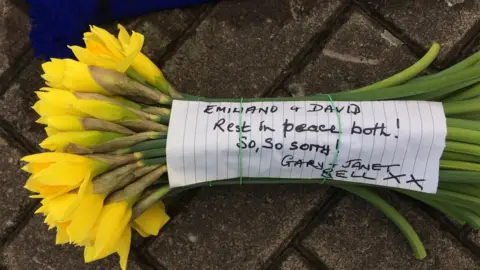 EMILIANO & DAVID
Rest in peace both!
So, So sorry!
GARY + JANET
BELL XX